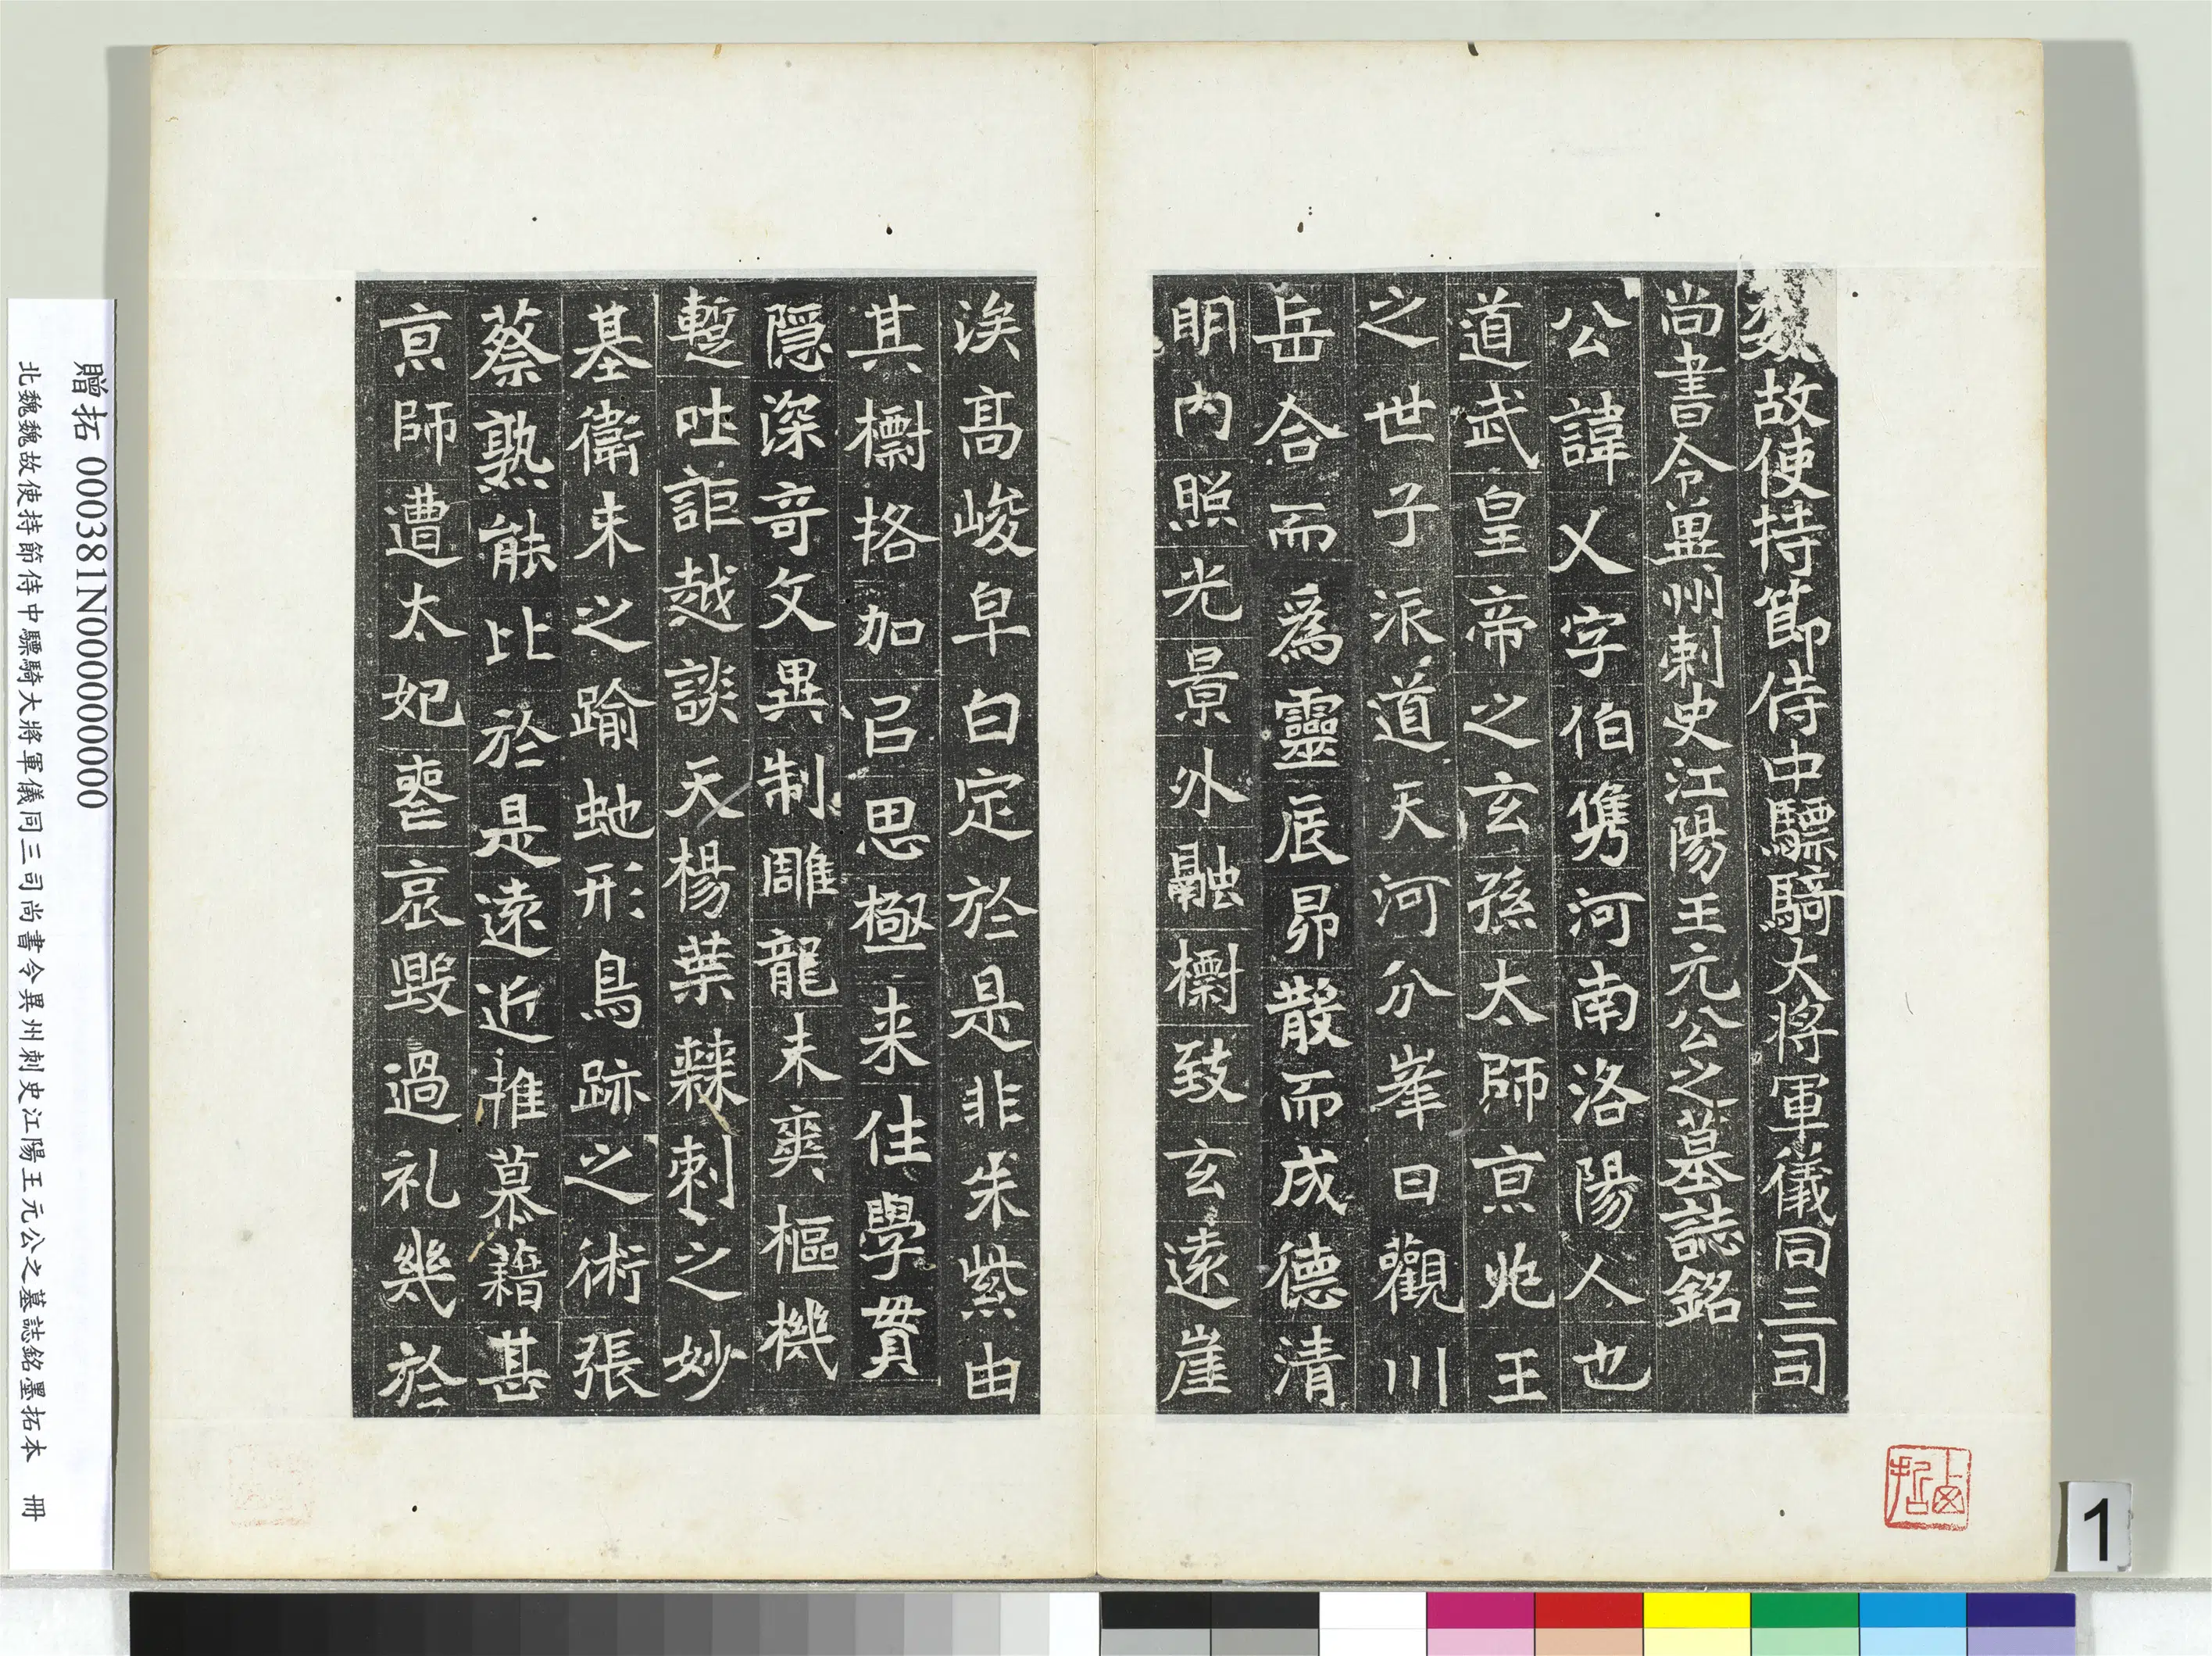 魏故使持節侍中驃騎大將軍儀同三司
尚書令兾州刺史江陽王元公之墓誌銘
公諱乂字伯儁河南洛陽人也
道武皇帝之玄孫太師京兆王
之世子派道天河分峯日觀川
岳合而爲靈辰昴散而成德清
明內照光景外融櫛致玄遠崖
涘高峻皁白定於是非朱紫由
其櫛格加㠯思極来往學貫
隱深奇文異制雕龍未爽樞機
蹔吐詎越談天楊葉棘刺之妙
基衛未之踰虵形鳥跡之術張
蔡孰能比於是遠近推慕藉甚
京師遭太妃喪哀毀過礼幾於
贈拓 000381N000000000
北魏魏故使持節侍中驃騎大將軍儀同三司尚書令異州刺史江陽王元公之墓誌銘墨拓本 冊
1